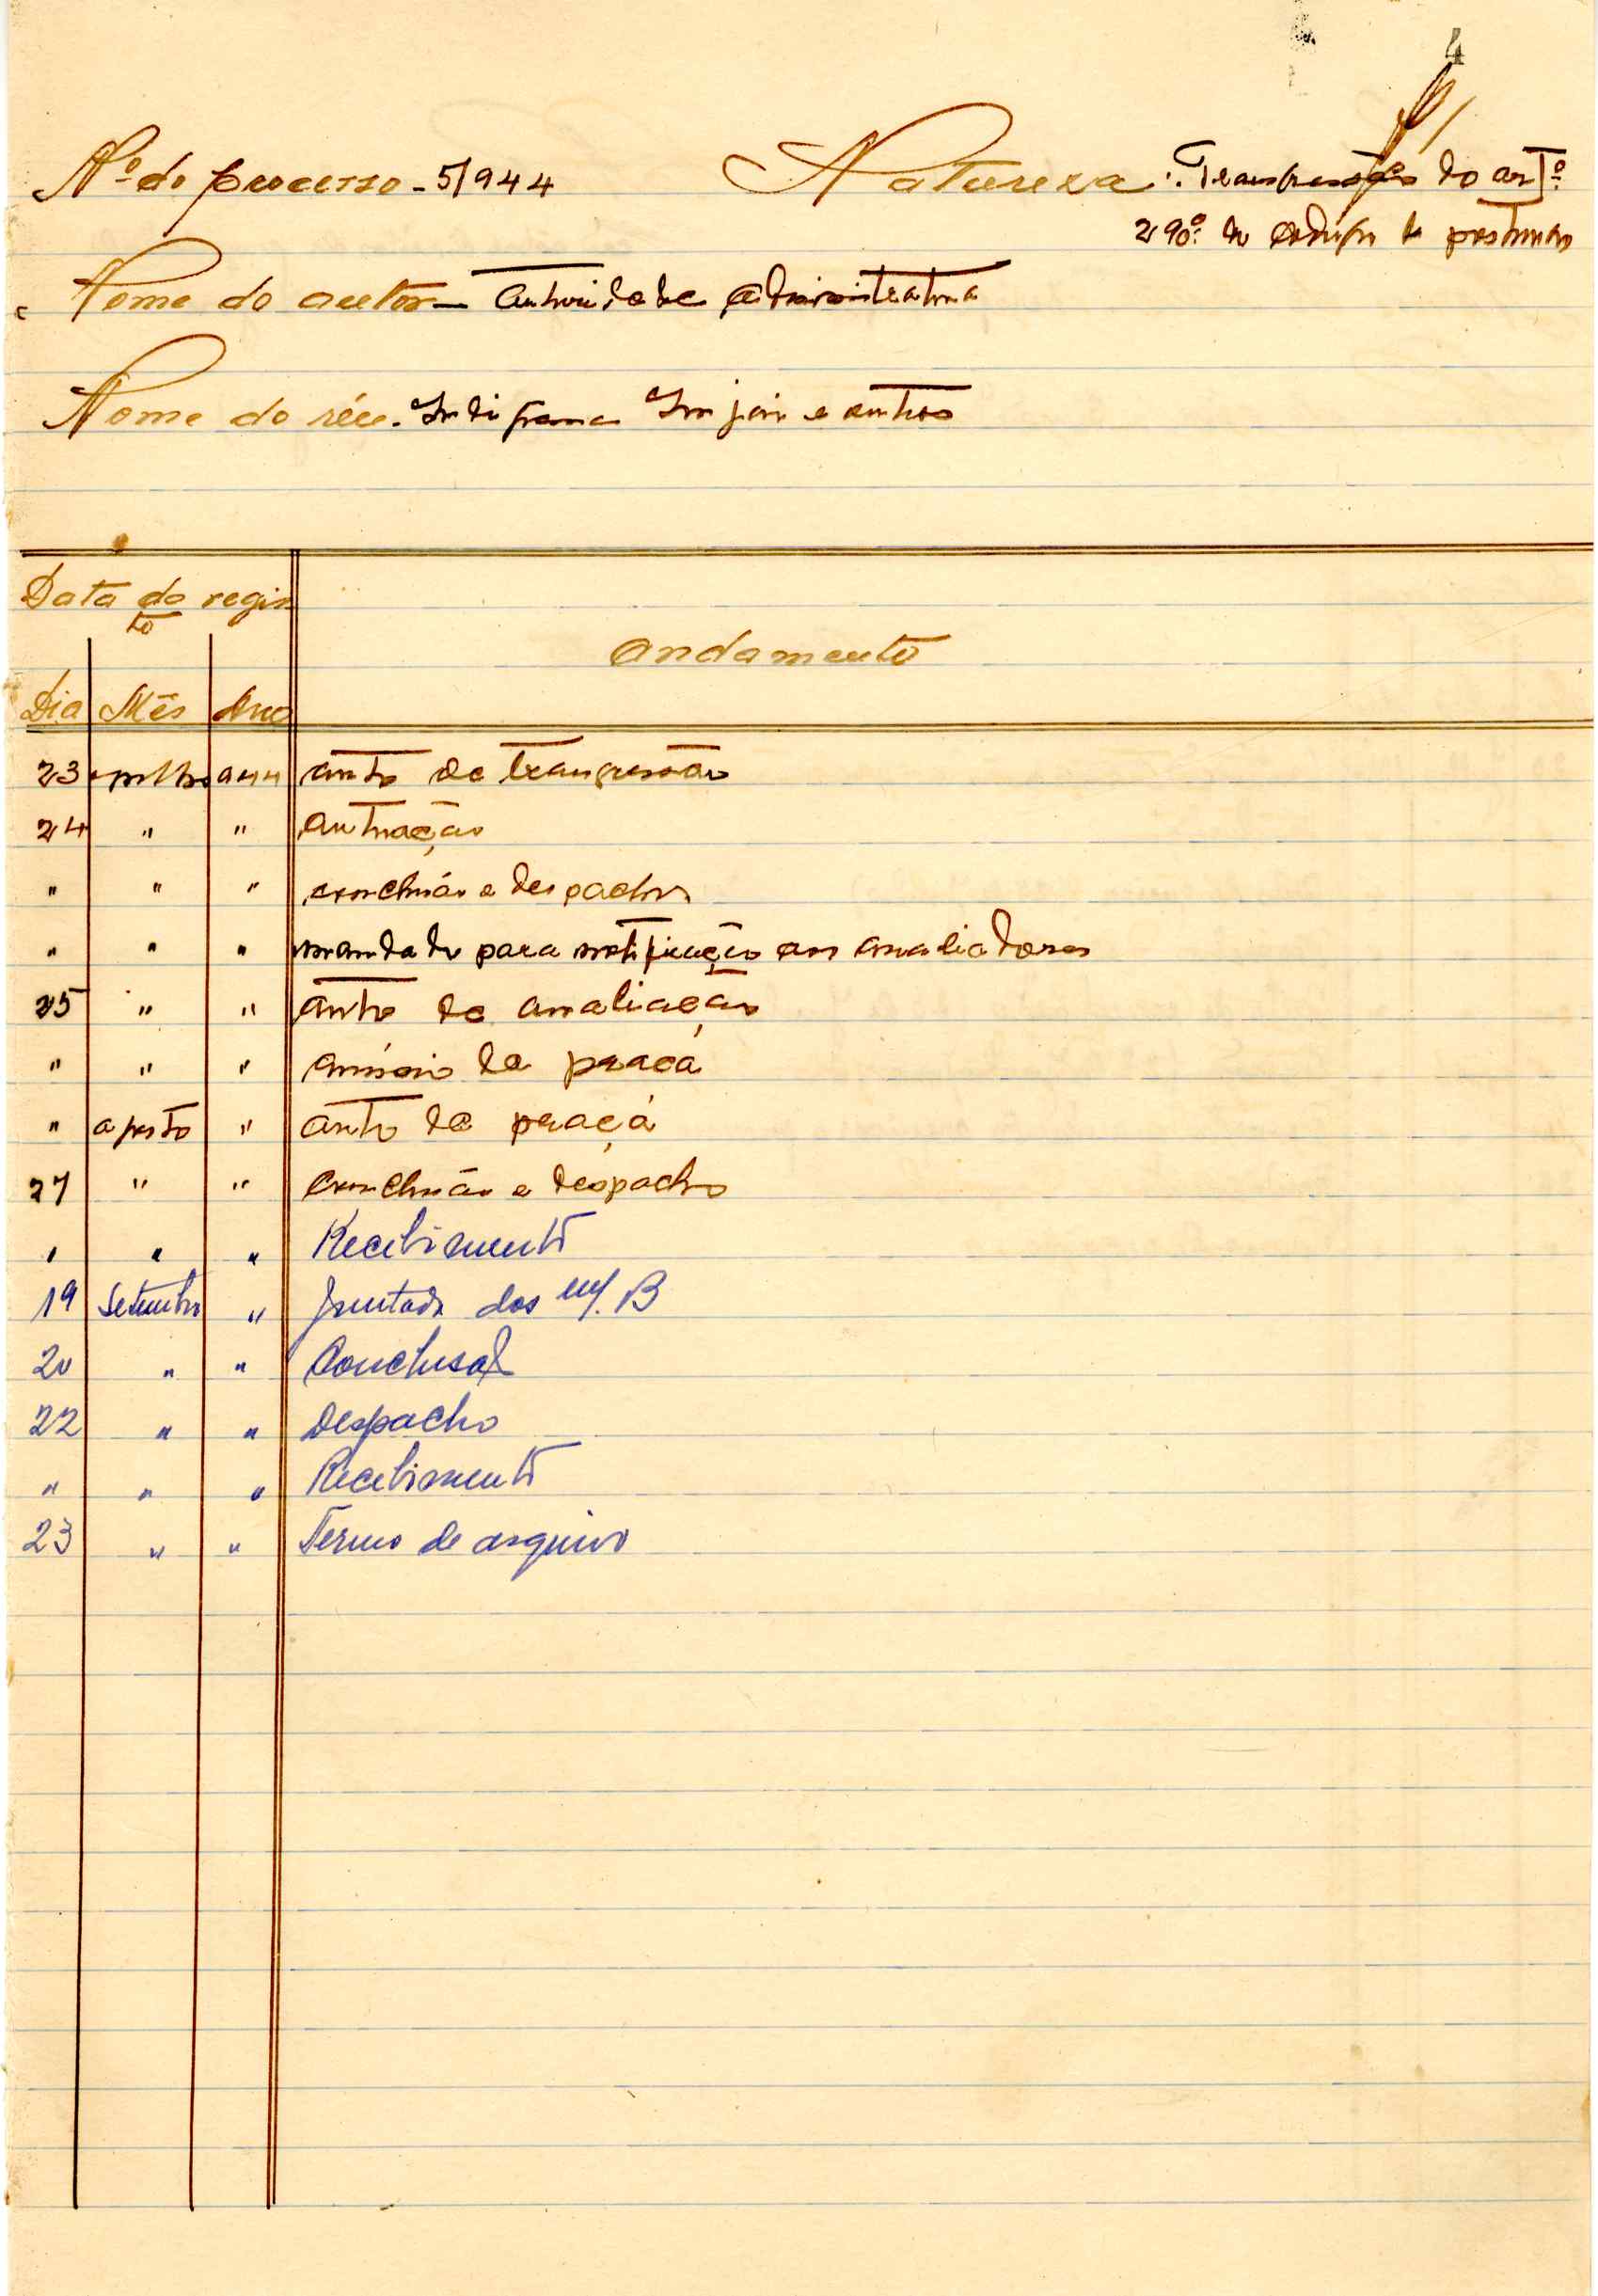 4
Nº do processo - 5/944 Natureza: Transgressão do artº
290º do código de posturas
Nome do autor - Autoridade Administrativa
Nome do réu - Indigena e outros
Data do regis
to
Andamento
Dia Mês Ano
23 944 auto de transgressão
24 " " autuação
" " " conclusão e despacho
" " " mandado para notificação aos avaliadores
25 " " auto de avaliação
" " " anúncio de praça
" agosto " auto de praça
27 " " conclusão e despacho
" " " Recebimento
19 Setembro " Juntada dos B
20 " " Conclusão
22 " " Despacho
" " " Recebimento
23 " " Termo de arquivo